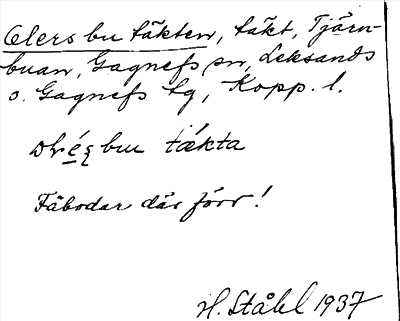 Olers bu täkten, täkt, Tjärn-
buan, Gagnefs sn, Leksands
o. Gagnefs tg, Kopp. l.
bu tǽkta
Fäbodar där förr!
H. Ståhl 1937